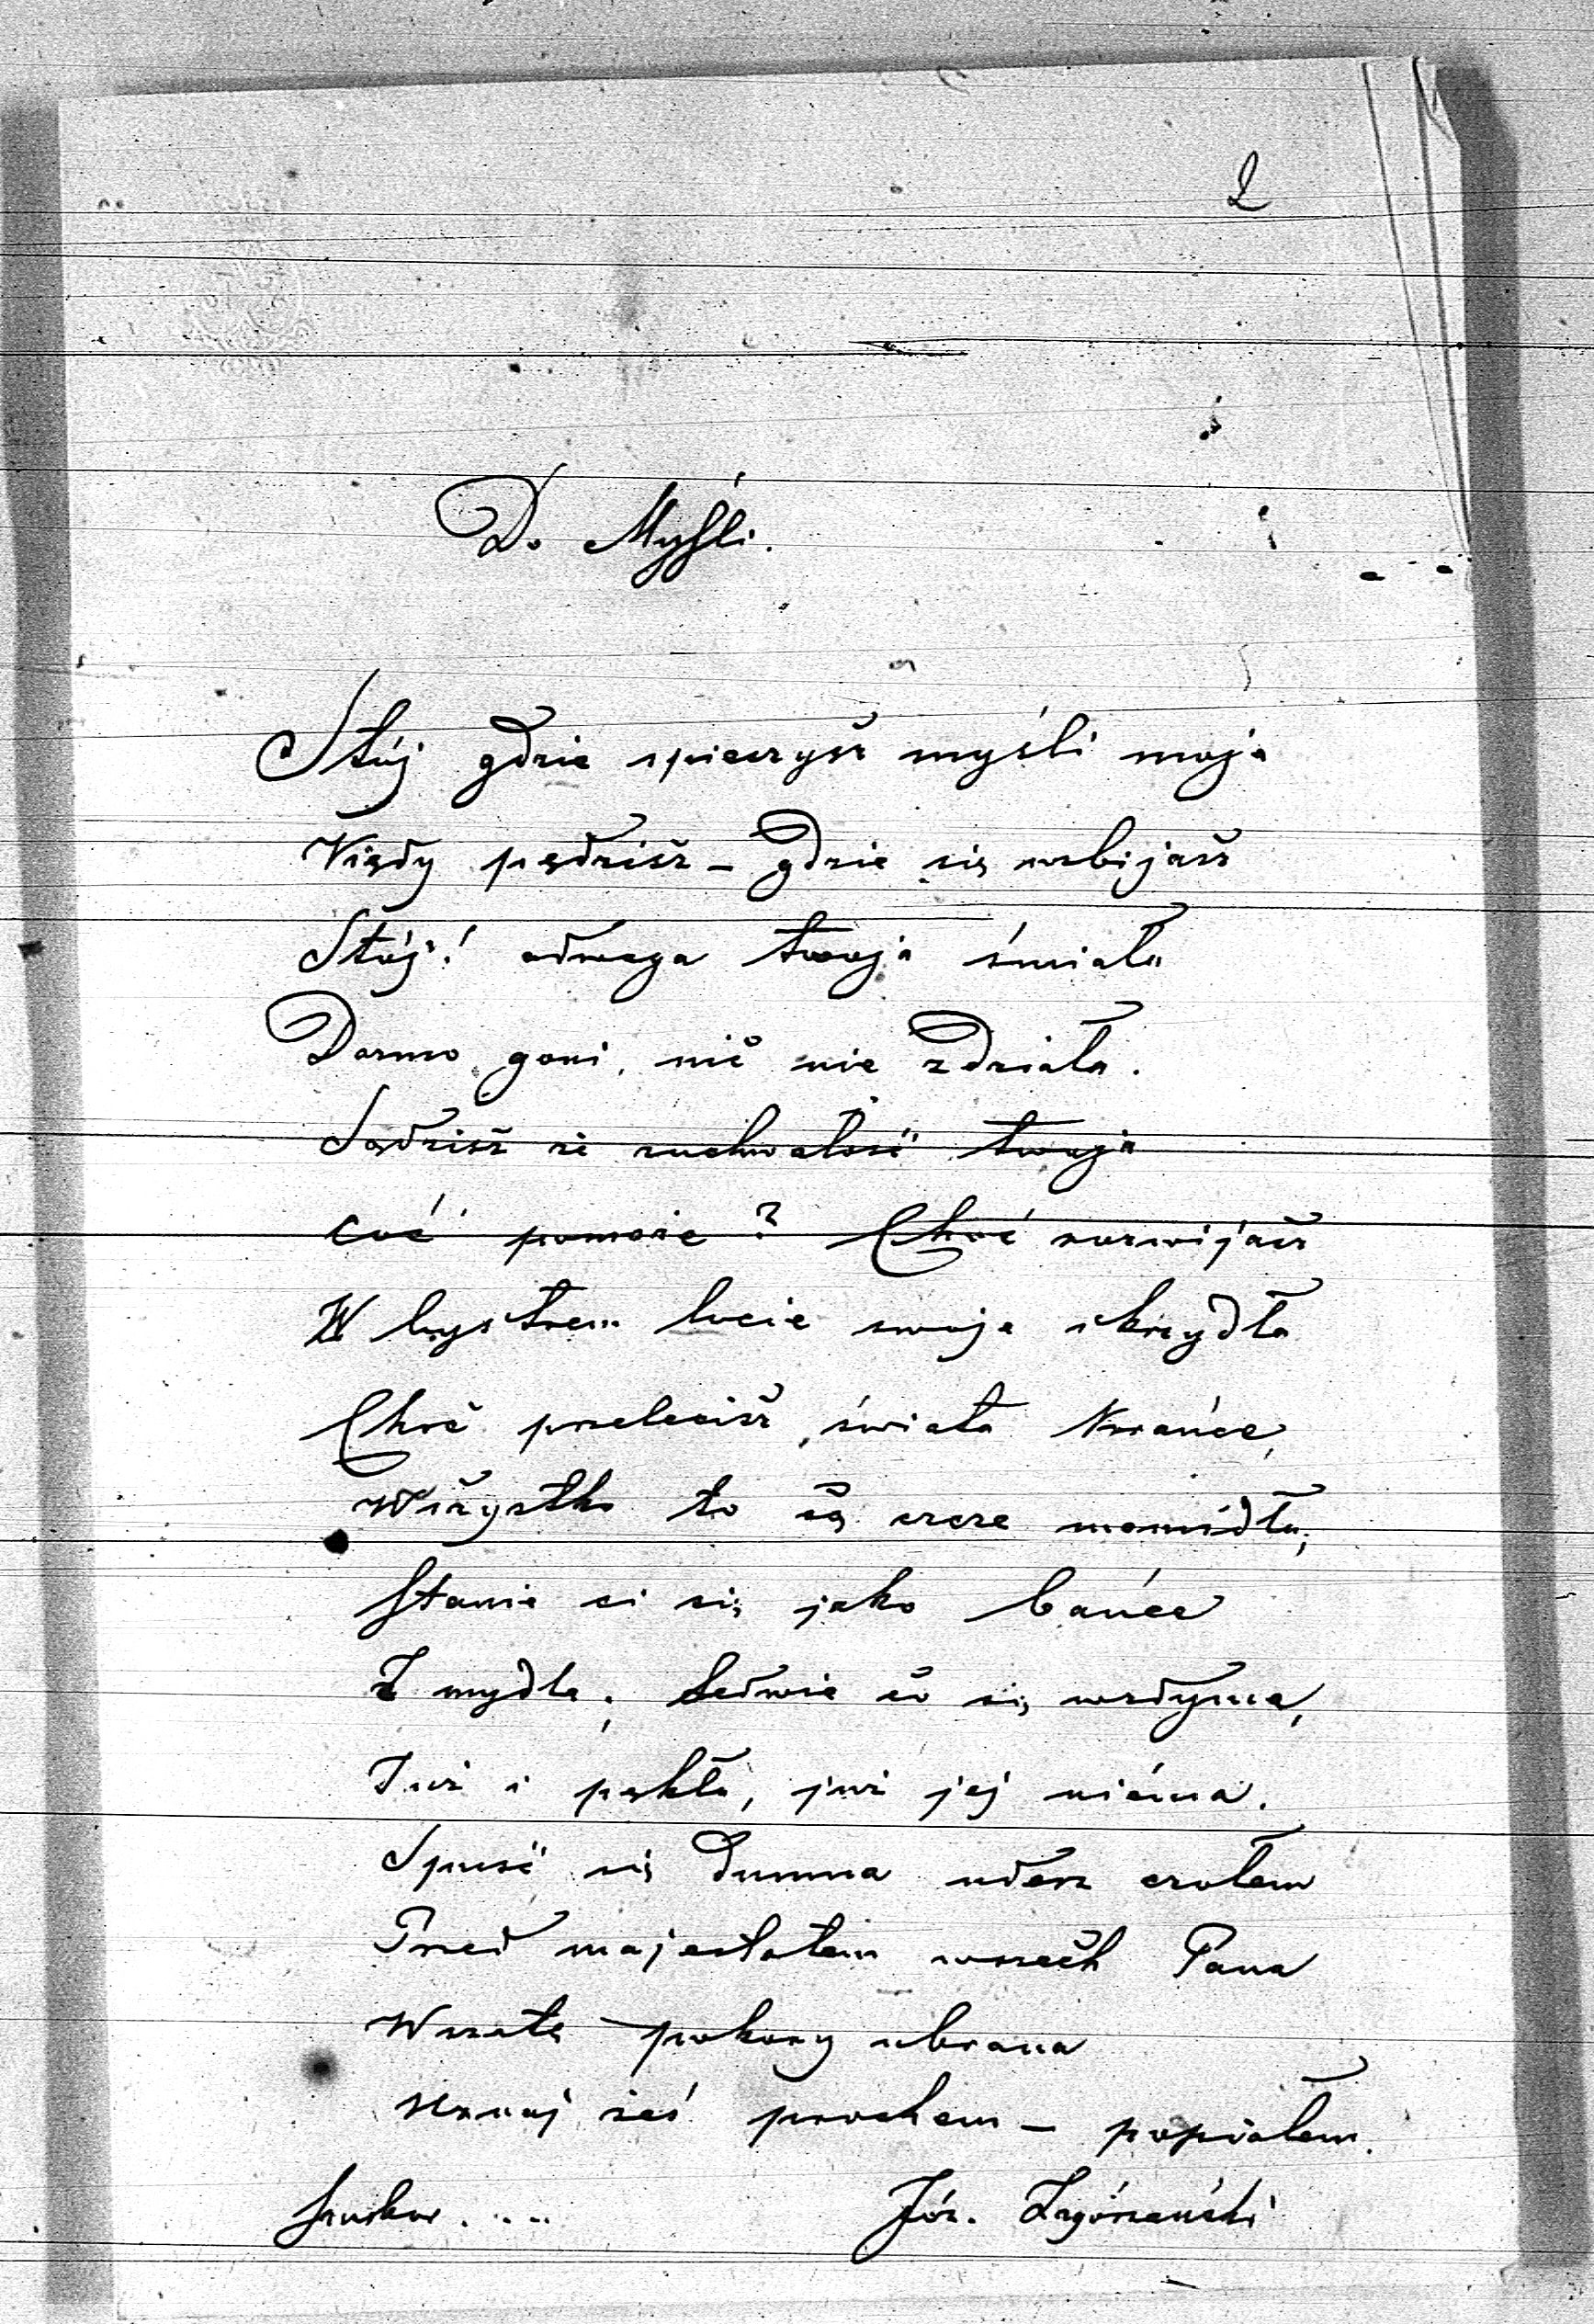 2
Do Myśli.
Stój gdzie spieszysz myśli moja
Kiędy pędzisz – gdzie się wzbijasz
Stój! odwaga twoja śmiała
Darmo goni, nic nie zdziała.
Sądzisz że zuchwałość twoja
coć pomoże? Choć rozwijasz
W bystrem locie swoje skrzydła
Choć przelecisz świata krańce,
Wszystko to są czcze mamidła,
Stanie ci się jako bańce
Z mydła. Ledwie co się wzdyma,
Już i pękła, już jej niéma.
Spuść się dumna uderz czołem
Przed majestatem wszech Pana
W szatę pokory ubrana
Uznaj żeś prochem – popiołem.
Józ. Zagórzański